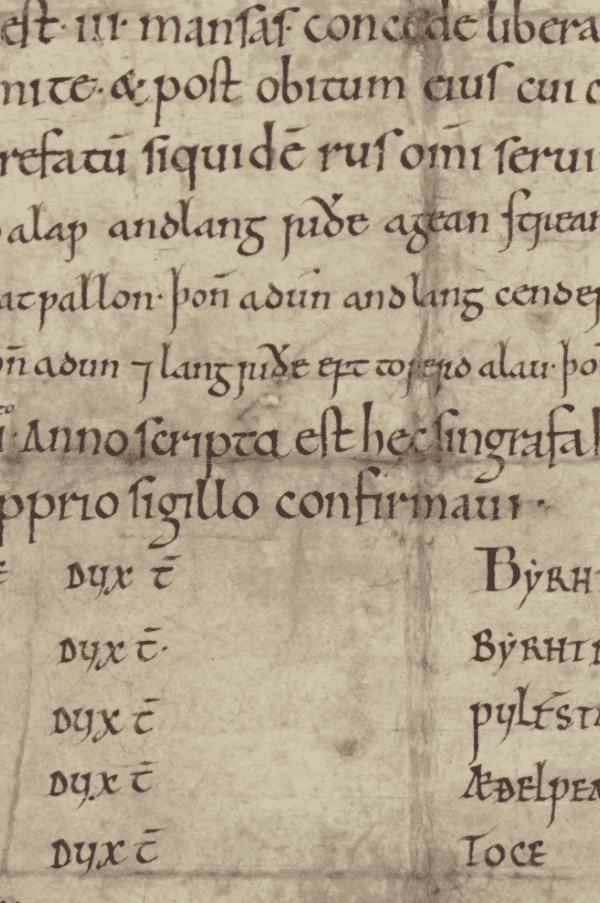 est· iii· mansas· concede libera
mite· & post obitum eius cui c
refatū siquidē rus om̄i serui
alaƿ andlang riðe agean streaƿ
atƿallon· þoñ adun andlang cender
oñ adun ⁊ lang riðe eft to alau· þo
ī· Anno scripta est hec singrafa
pprio sigillo confirmaui·
DUX c̄ BẏRH
DUX c̄· BẏRHT
DUX c̄ ƿULF̄ST
DUX c̄ ÆÐELƿEA
DUX c̄ TOCE